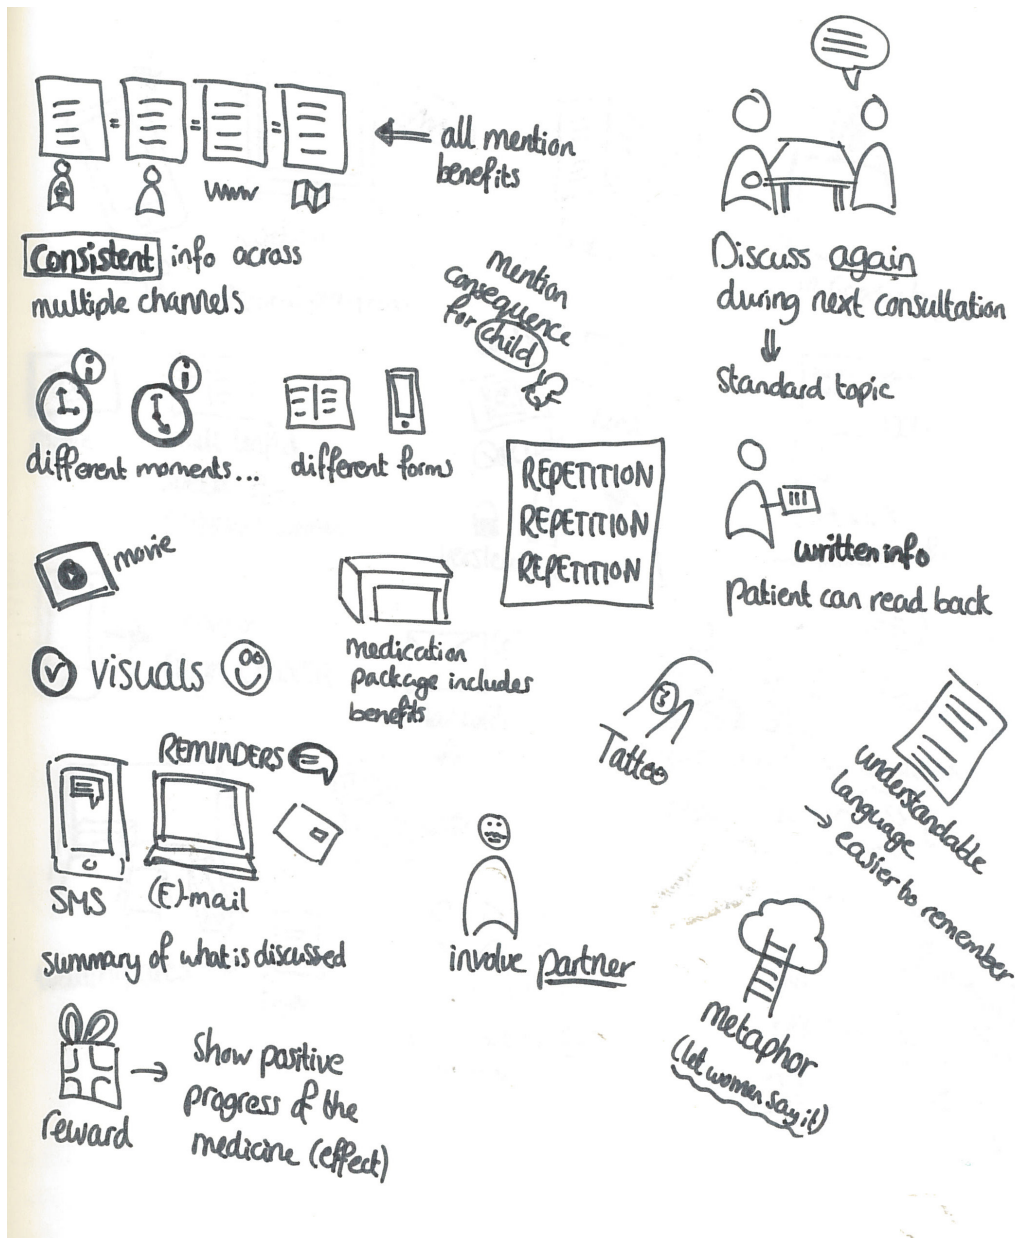 www
all mention
benefits
Consistent info across
multiple channels
Discuss again
during next consultation
⇓
Standard topic
mention
consequence
for child
different moments...
different forms
REPETITION
REPETITION
REPETITION
written info
Patient can read back
movie
visuals
medication
package includes
benefits
Tattoo
understandable
language
→ easier to remember
REMINDERS
SMS
(E)-mail
summary of what is discussed
involve partner
metaphor
(let women say it)
reward
→ Show positive
progress of the
medicine (effect)